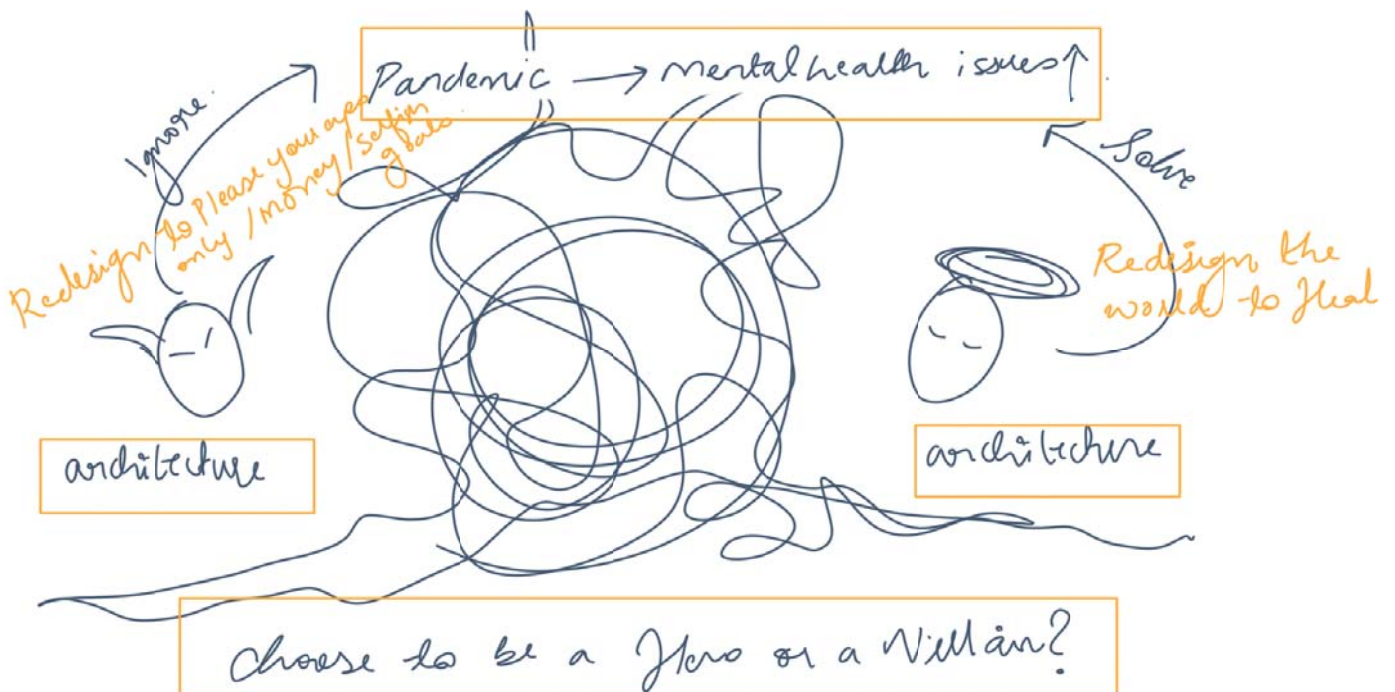 Pandemic → mental health issues ↑
Ignore.
Redesign to Please your
only / money / selfish
goals.
Solve
Redesign the
world to Heal
architecture
architecture
choose to be a Hero or a Villain?